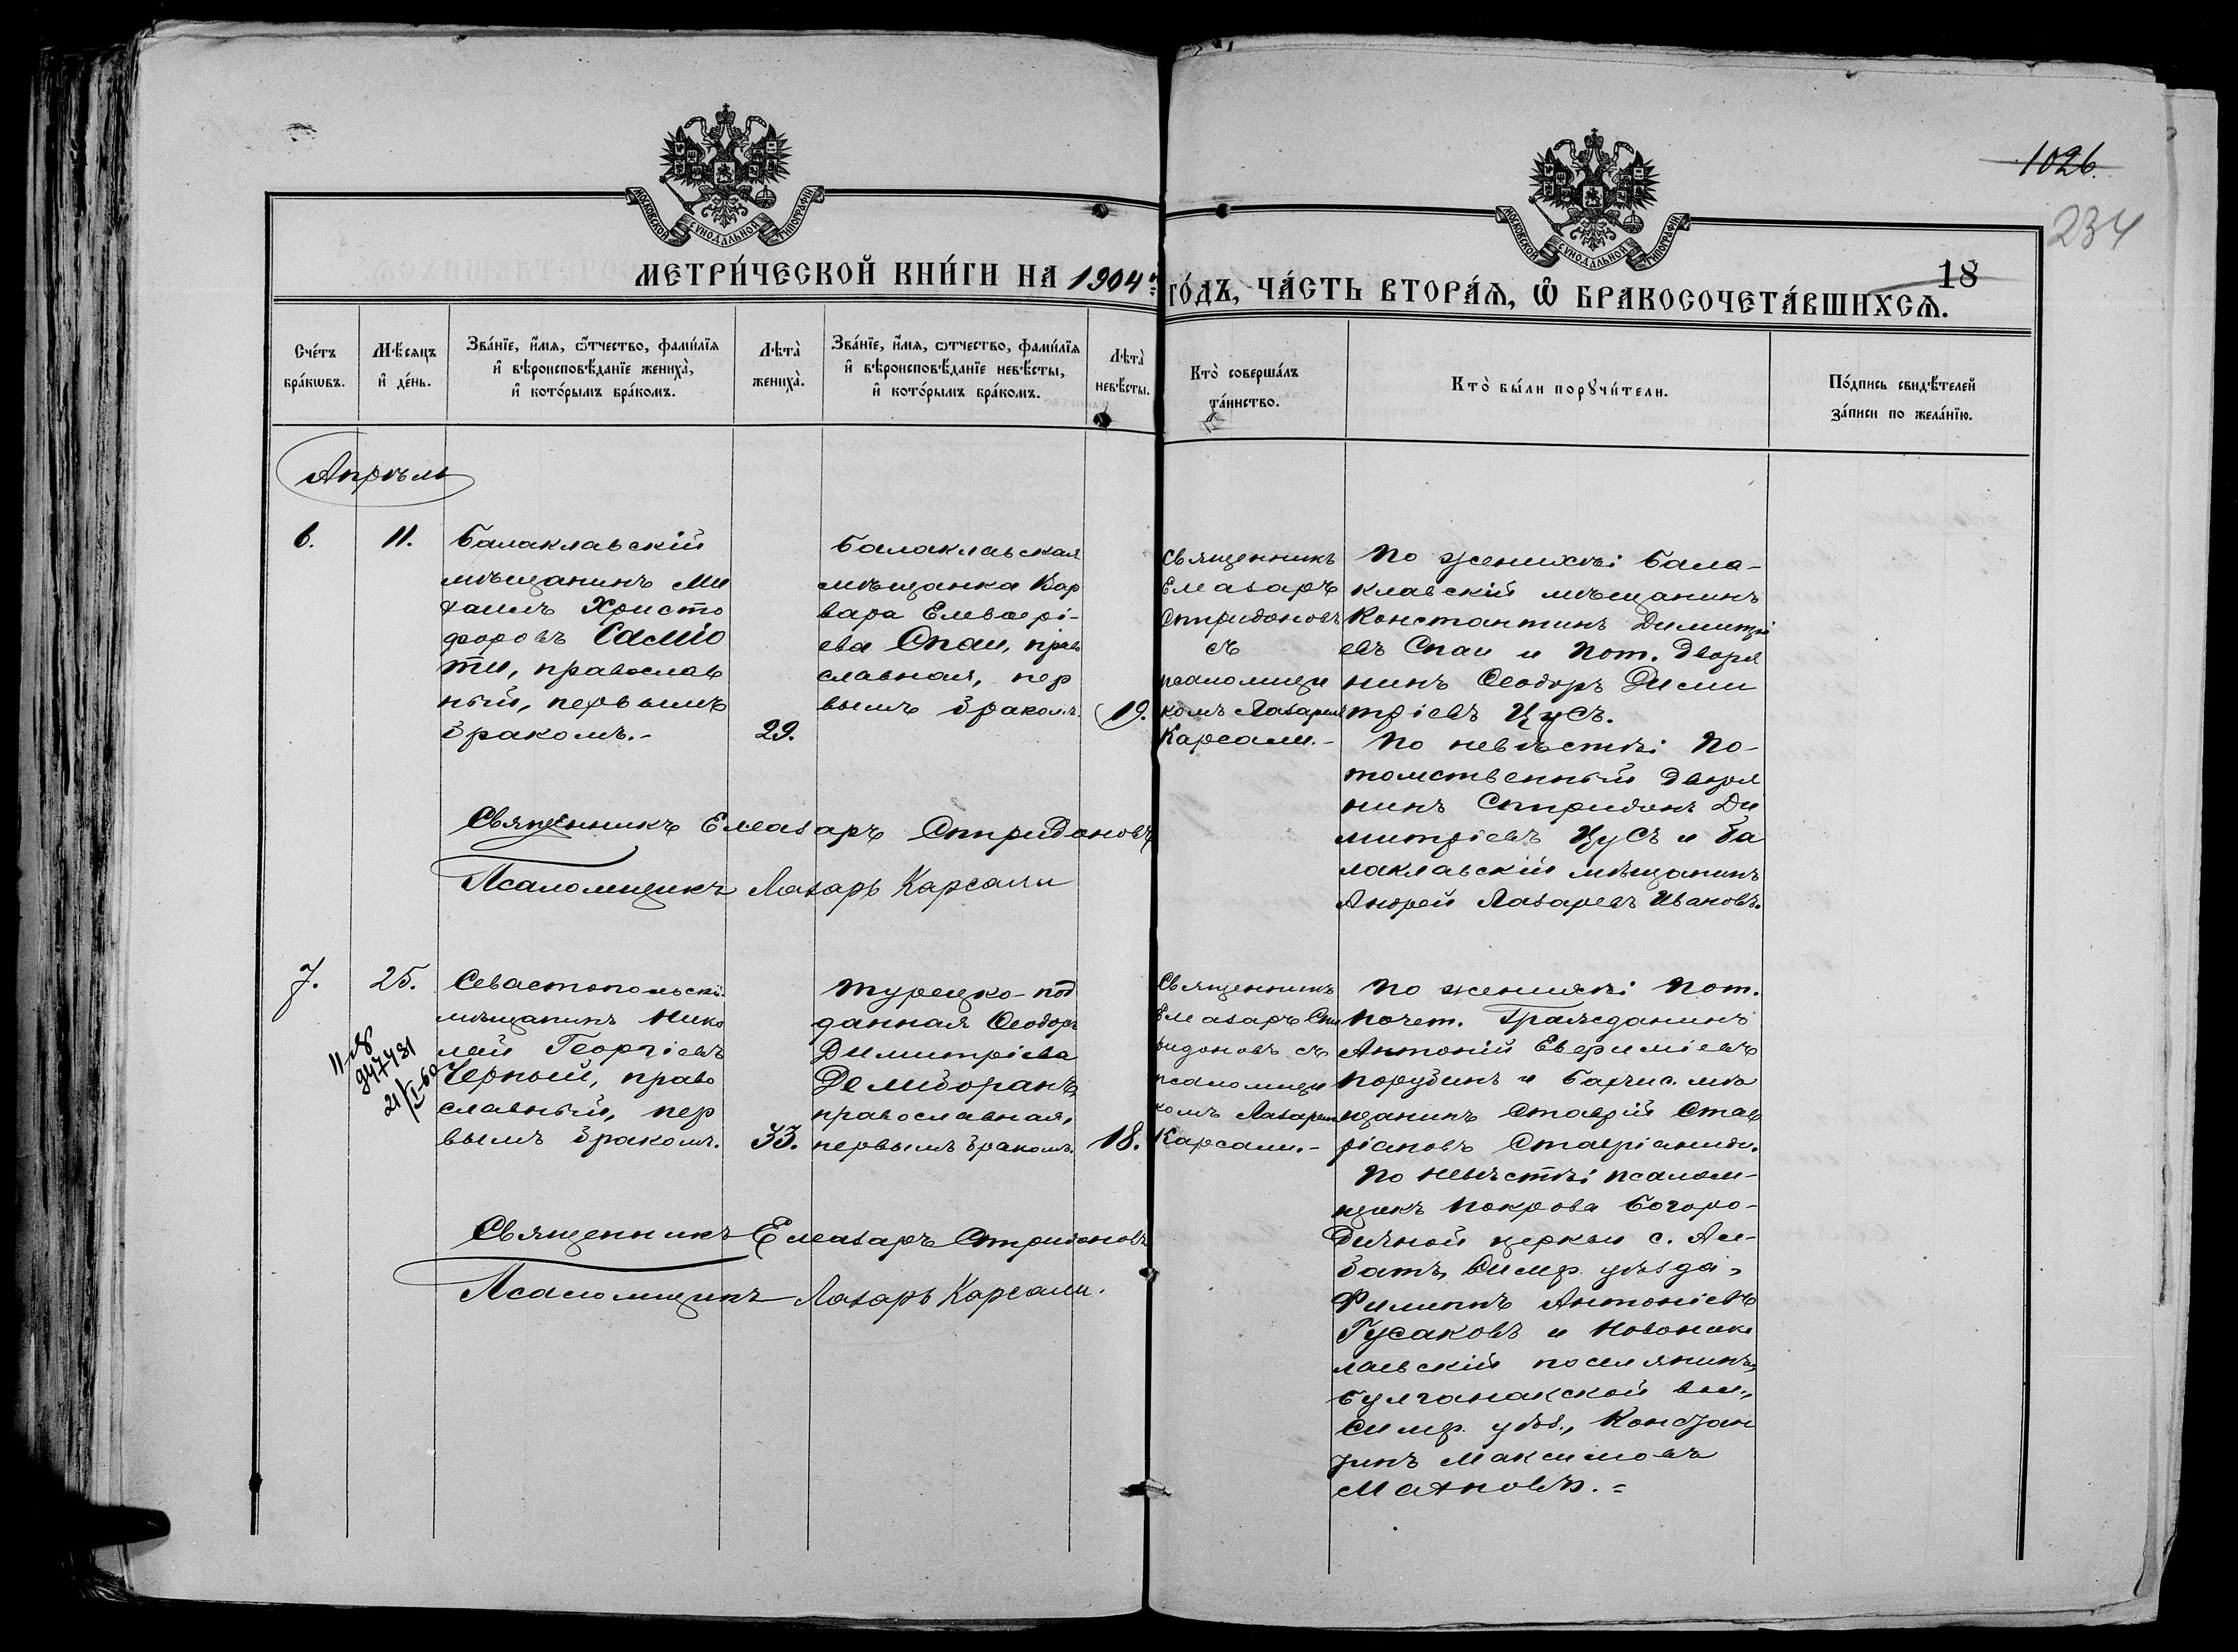 1026.
234
18
МОСКОВСКОЙ СѴНОДАЛЬНОЙ ТИПОГРАФІИ
МОСКОВСКОЙ СѴНОДАЛЬНОЙ ТИПОГРАФІИ
МЕТРИ́ЧЕСКОЙ КНИ́ГИ НА 1904 й
ГО́ДЪ, ЧА́СТЬ ВТОРА́Ѧ, Ѽ БРАКОСОЧЕТА́ВШИХСѦ.
Сче́тъ
бра́кѡвъ.
Мѣ́сяцъ
и҆ де́нь.
Зва́нїе, и҆́мя, ѻ҆́тчество, фами́лїя
и҆ вѣроисповѣ́данїе жениха̀,
и҆ кото́рымъ бра́комъ.
Лѣта̀
жениха̀.
Зва́нїе, и҆́мя, ѻ҆́тчество, фами́лїя
и҆ вѣроисповѣ́данїе невѣ́сты,
и҆ кото́рымъ бра́комъ.
Лѣта̀
невѣ́сты.
Кто̀ соверша́лъ
та́инство.
Кто̀ бы́ли порꙋчи́тели.
По́дпись свидѣ́телей
за́писи по жела́нїю.
Апрѣль
6.
11.
Балаклавскій
мѣщанинъ Ми
хаилъ Христо
форовъ Самио
ти, православ
ный, первымъ
бракомъ.-
29.
Балаклавская
мѣщанка Вар
вара Елевѳері-
ева Спаи, право
славная, пер
вымъ бракомъ.
19.
Священникъ
Елеазаръ
Спиридоновъ
съ
псаломщи
комъ Лазаремъ
Карсали.-
По женихѣ: Бала-
клавскій мѣщанинъ
Константинъ Димитрі
евъ Спаи и пот. дворя
нинъ Ѳеодоръ Дими
тріевъ Цусъ.
По невѣстѣ: По-
томственный дворя
нинъ Спиридонъ Ди
митріевъ Цусъ и Ба
лаклавскій мѣщанинъ
Андрей Лазаревъ Ивановъ.
Священникъ Елеазаръ Спиридоновъ
Псаломщикъ Лазарь Карсали
7.
25.
11-Я8
947431
21/I-60
Севастопольскій
мѣщанинъ Нико
лай Георгіевъ
Черный, право
славный, пер
вымъ бракомъ.
33.
Турецко-под
данная Ѳеодора
Димитріева
Демиборанъ,
православная,
первымъ бракомъ.
18.
Священникъ
Елеазаръ Спи
ридоновъ съ
псаломщи
комъ Лазаремъ
Карсали.-
По женихѣ: Пот.
почет. Гражданинъ
Антоній Евѳиміевъ
Порубинъ и Бахчис. мѣ
щанинъ Ставрій Став
ріановъ Ставріаниди.
По невѣстѣ: псалом-
щикъ Покрова Богоро-
дичной церкви с. Ал-
батъ, Симф. уѣзда,
Филиппъ Антоніевъ
Гусаковъ и Новонико
лаевскій поселянинъ,
Булганакской вол.,
Симф. уѣз., Констан
тинъ Максимовъ
Махновъ.=
Священникъ Елеазаръ Спиридоновъ
Псаломщикъ Лазарь Карсали.